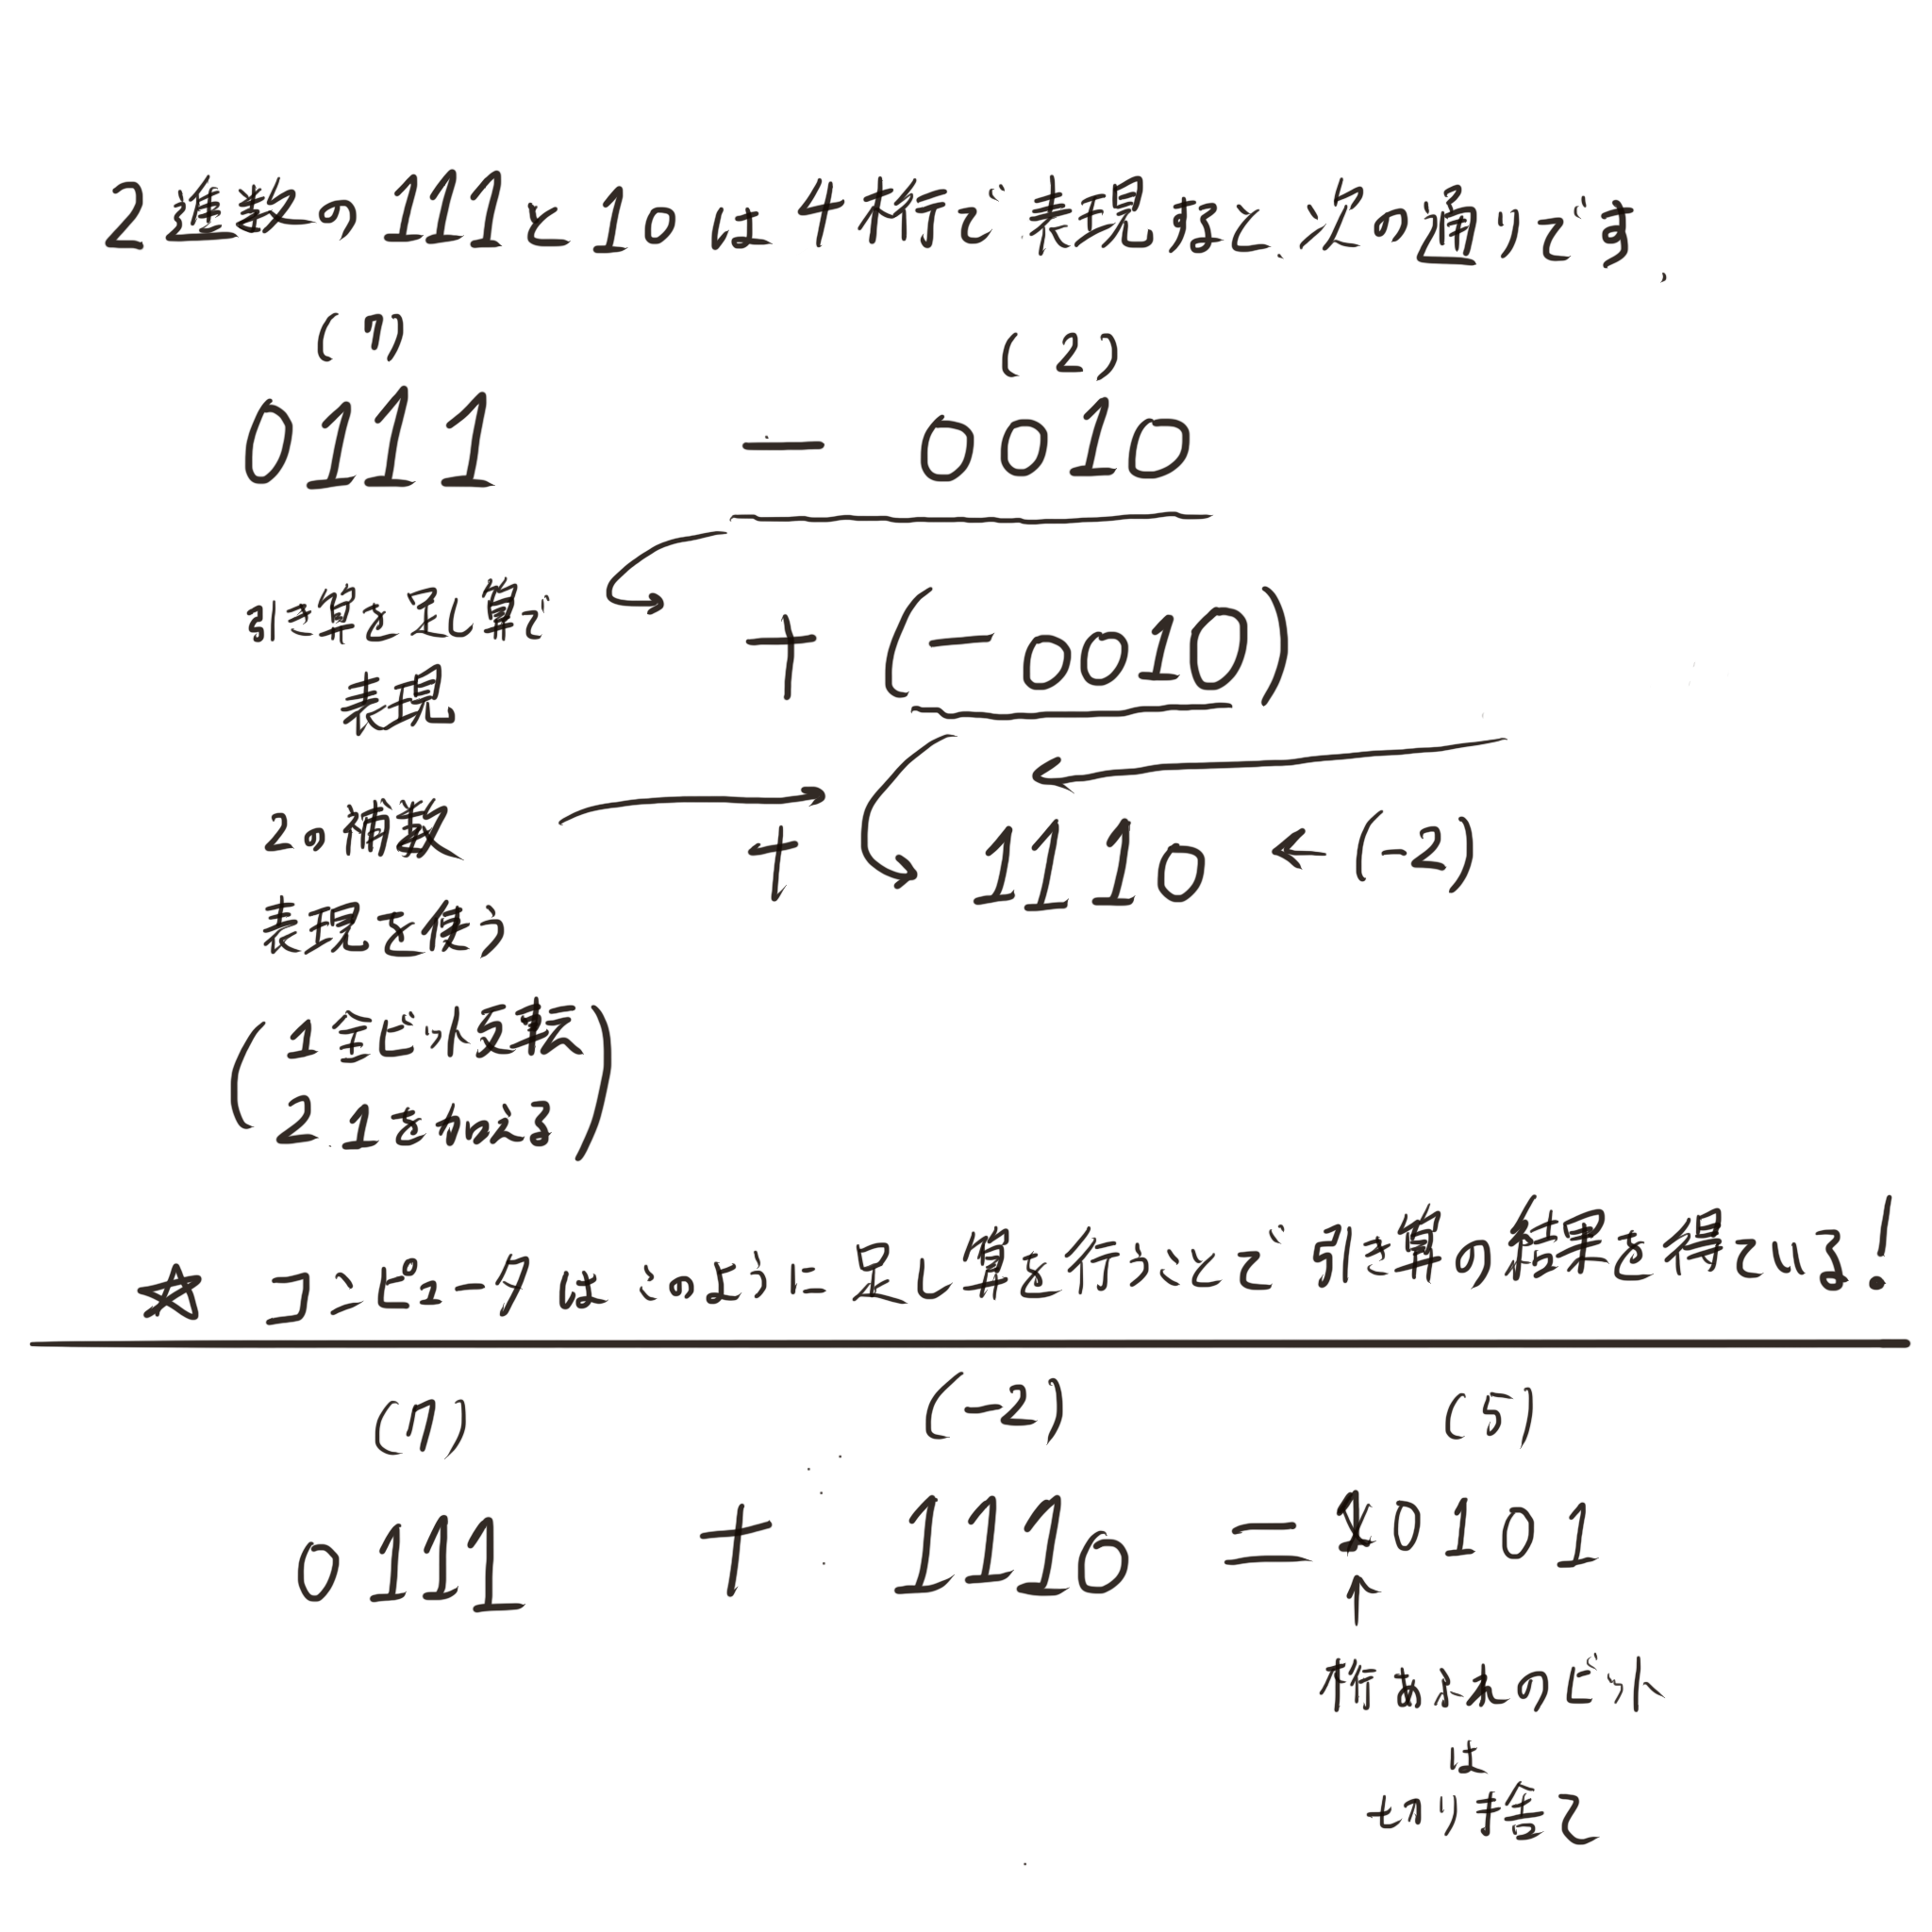 2進数の111と10は4桁で表現すると、次の通りです、
(7) (2)
0111 - 0010
引き算を足し算で
表現
+ (-0010)
2の補数
表現を使う
+ 1110 ← (-2)
1 全ビット反転
2. 1をかえる
☆ コンピュータはこのように足し算を行うことで引き算の結果を得ている!
(7) (-2) (5)
0111 + 1110 = 10101
↑
桁あふれのビット
は
切り捨て